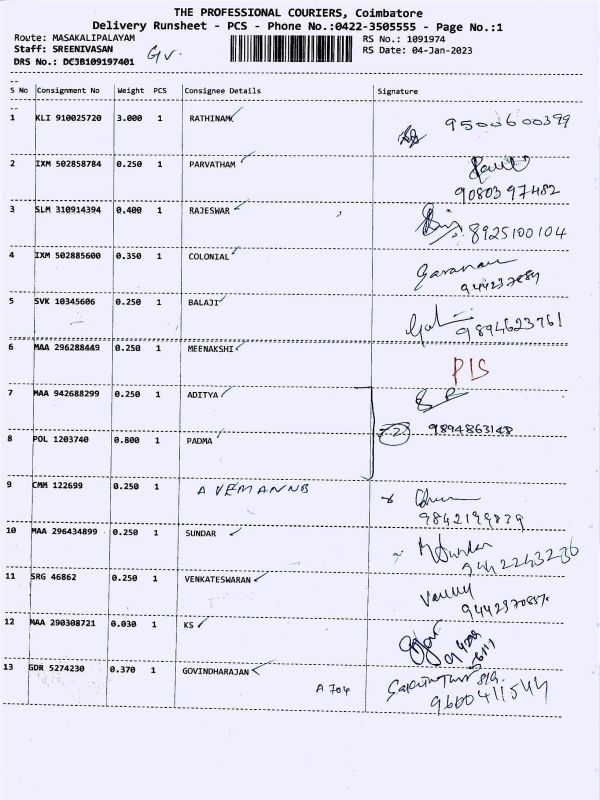 THE PROFESSIONAL COURIERS, Coimbatore
Delivery Runsheet - PCS - Phone No.:0422-3505555 - Page No.:1
Route: MASAKALIPALAYAM RS No.: 1091974
Staff: SREENIVASAN RS Date: 04-Jan-2023
DRS No.: DCJB109197401
S No Consignment No Weight PCS Consignee Details Signature
1 KLI 910025720 3.000 1 RATHINAM 9500600399
2 IXM 502858784 0.250 1 PARVATHAM
9080397482
3 SLM 310914394 0.400 1 RAJESWAR 8925100104
4 IXM 502885600 0.350 1 COLONIAL
5 SVK 10345606 0.250 1 BALAJI 9894623761
6 MAA 296288449 0.250 1 MEENAKSHI
PIS
7 MAA 942688299 0.250 1 ADITYA
9894863148
8 POL 1203740 0.800 1 PADMA
9 CMM 122699 0.250 1 A VEMANNB
9842199839
10 MAA 296434899 0.250 1 SUNDAR M Sundar
9442243236
11 SRG 46862 0.250 1 VENKATESWARAN
12 MAA 290308721 0.030 1 KS
13 GDR 5274230 0.370 1 GOVINDHARAJAN
A 704 9600411544